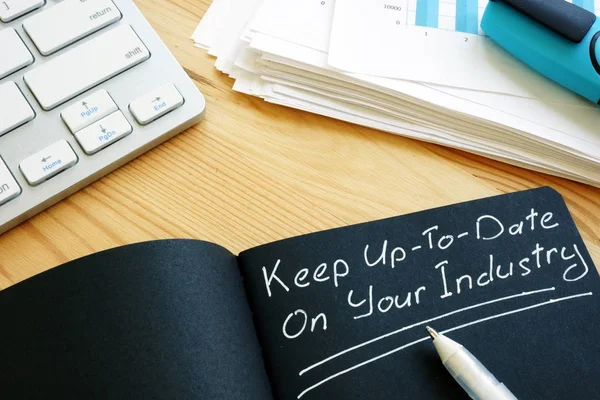 return
shift
PgUp
PgDn
Home
End
10000
0
0
1
2
Keep Up-To-Date
On Your Industry